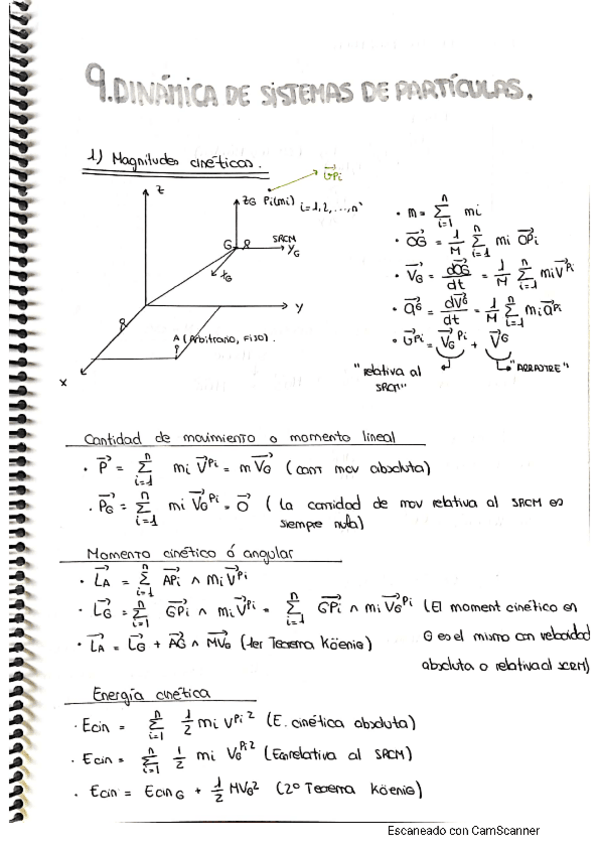 9. DINÁMICA DE SISTEMAS DE PARTÍCULAS.
1) Magnitudes cinéticas.
Z
ZG Pi(mi) i=1,2,...,n
v⃗Pi
SRCM
G
YG
XG
O
Y
A (Arbitrario, Fijo).
X
• m = Σ(i=1..n) mi
• O⃗G = 1/M Σ(i=1..n) mi O⃗Pi
• V⃗G = dO⃗G/dt = 1/M Σ(i=1..n) mi V⃗Pi
• a⃗G = dV⃗G/dt = 1/M Σ(i=1..n) mi a⃗Pi
• v⃗Pi = V⃗G^Pi + V⃗G
"relativa al SRCM"
"ARRASTRE"
Cantidad de movimiento o momento lineal
• P⃗ = Σ(i=1..n) mi V⃗Pi = m V⃗G (cant mov absoluta)
• P⃗G = Σ(i=1..n) mi V⃗G^Pi = 0⃗ (la cantidad de mov relativa al SRCM es
siempre nula)
Momento cinético ó angular
• L⃗A = Σ(i=1..n) A⃗Pi ∧ mi V⃗Pi
• L⃗G = Σ(i=1..n) G⃗Pi ∧ mi V⃗Pi = Σ(i=1..n) G⃗Pi ∧ mi V⃗G^Pi (El moment cinético en
G es el mismo con velocidad
absoluta o relativa al SCRM)
• L⃗A = L⃗G + A⃗G ∧ MV⃗G (1er Teorema Köenig)
Energía cinética
• Ecin = Σ(i=1..n) 1/2 mi VPi² (E. cinética absoluta)
• Ecin = Σ(i=1..n) 1/2 mi VG^Pi² (Ec relativa al SRCM)
• Ecin = EcinG + 1/2 MVG² (2º Teorema Köenig)
Escaneado con CamScanner